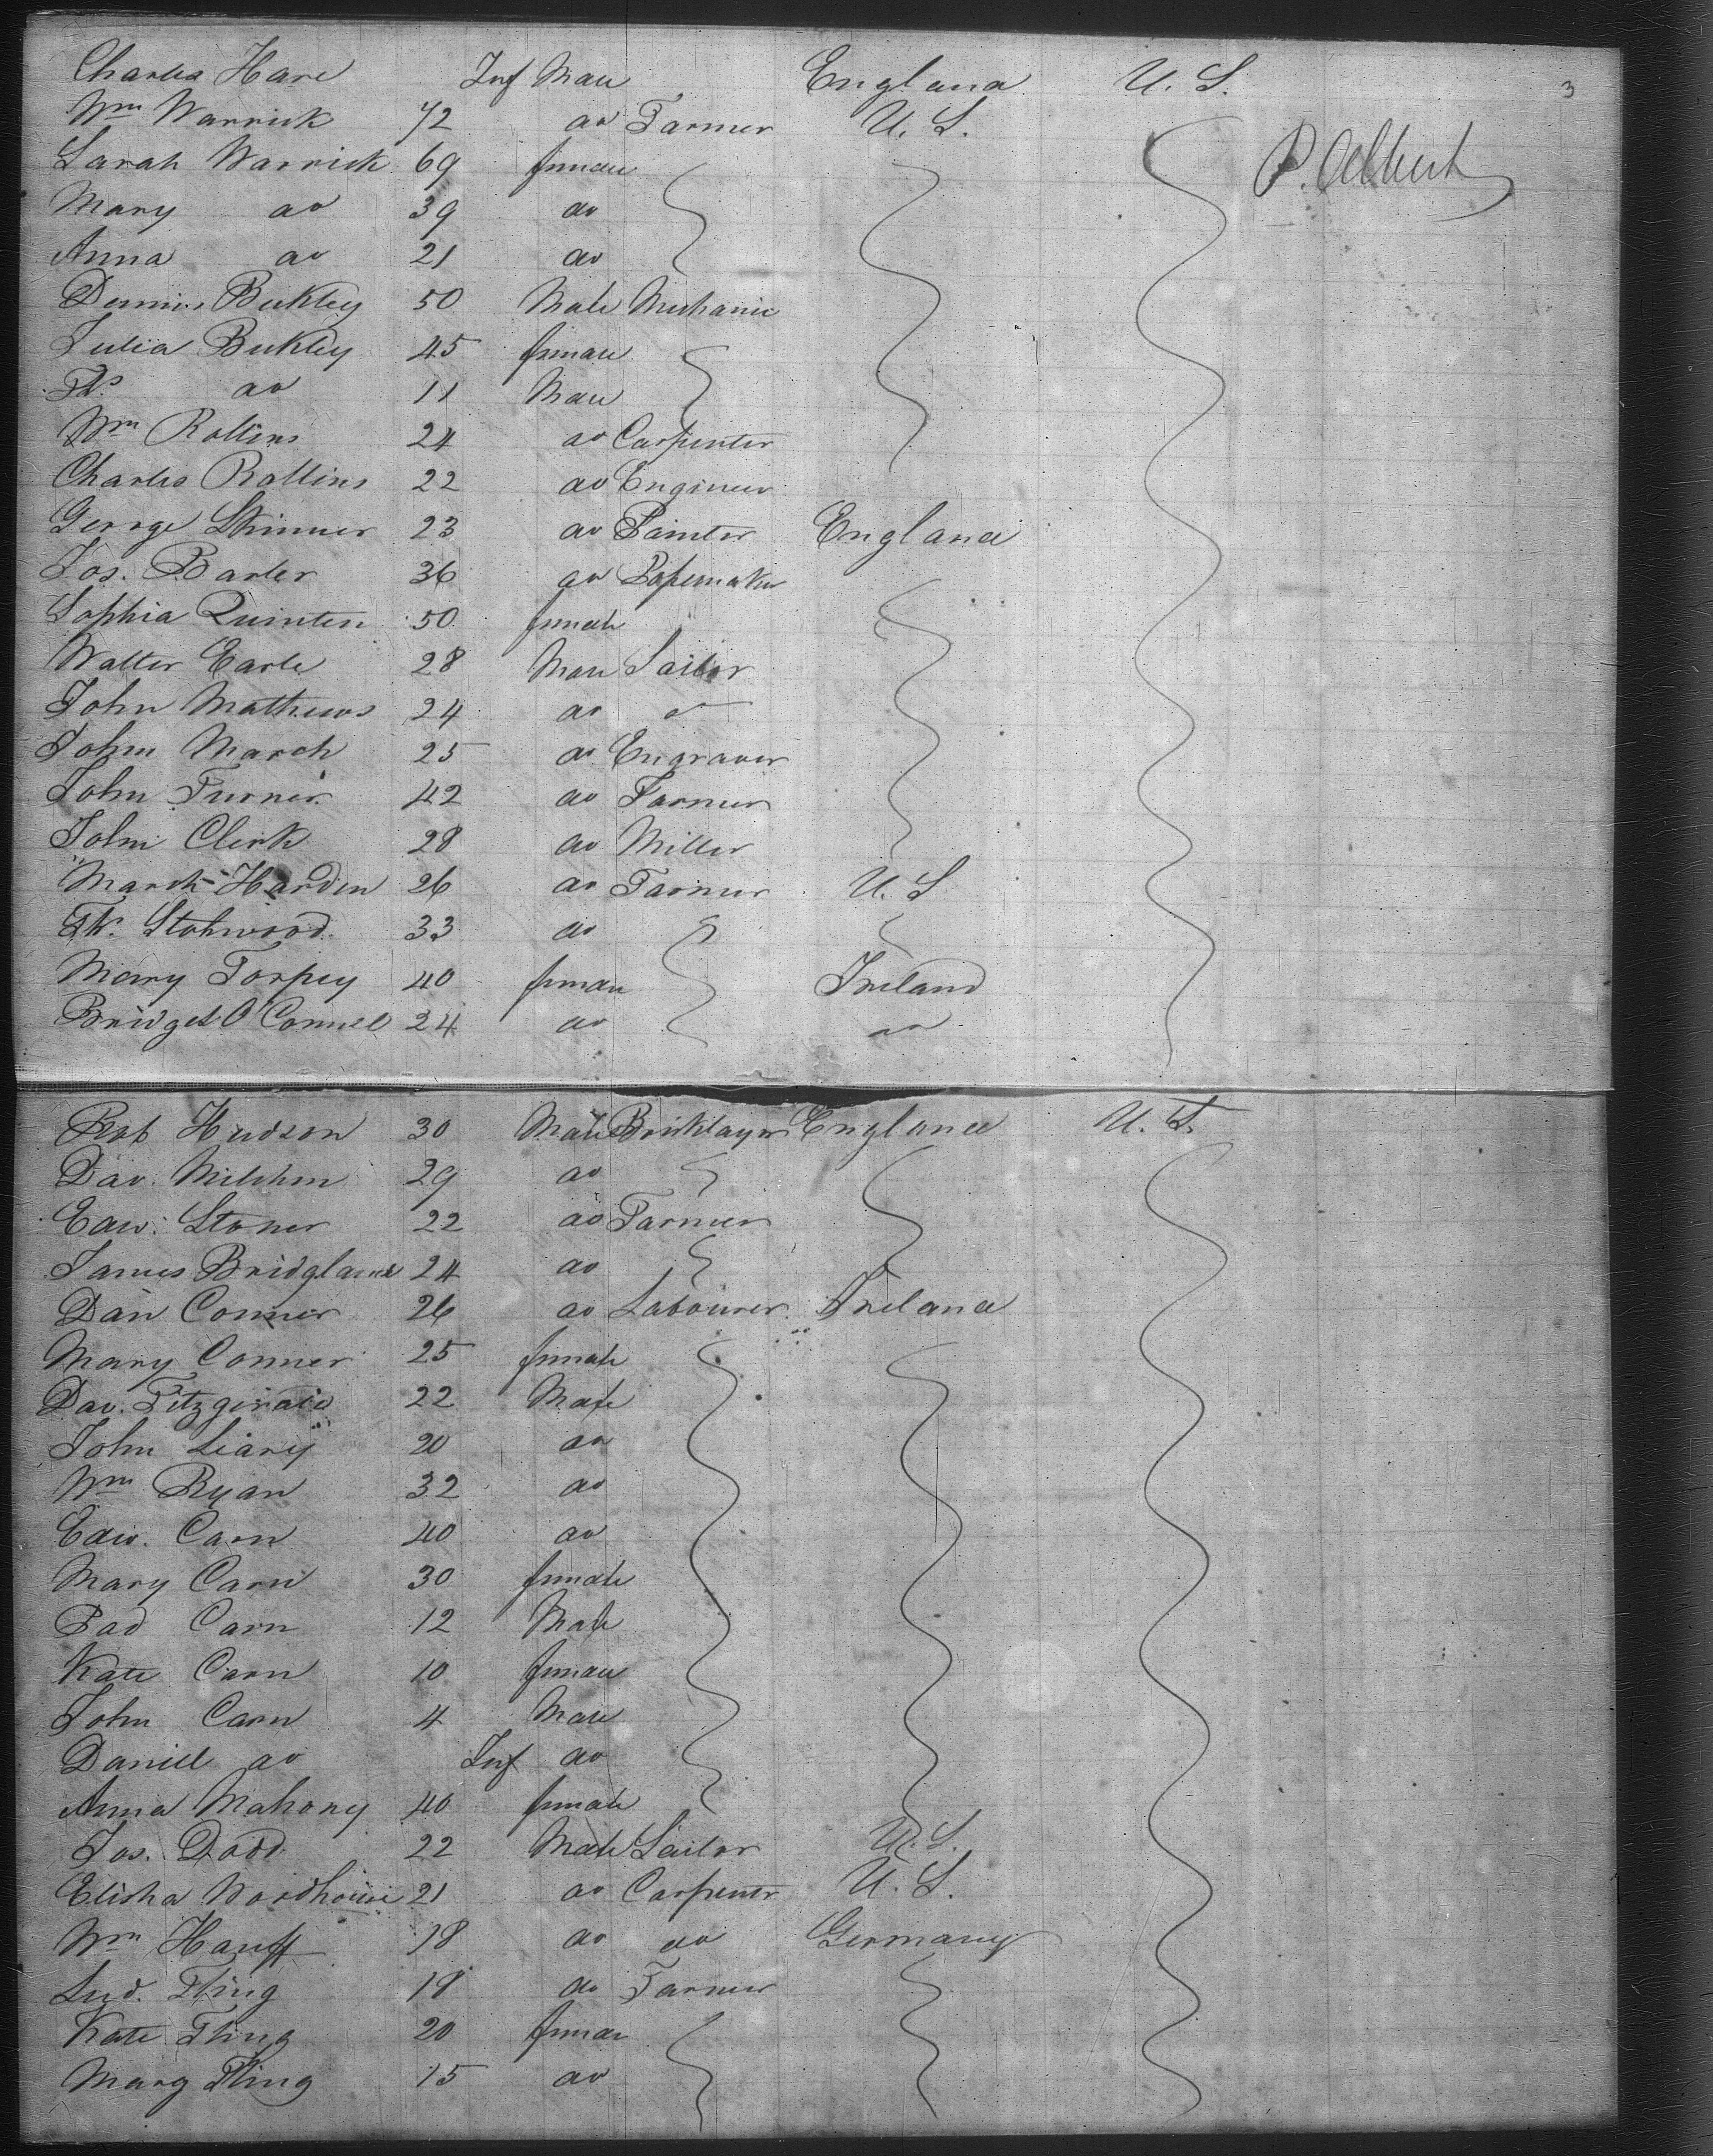 Charles Hare Inf Male England U. S. 3
Wm Warrick 72 do Farmer U. S.
Sarah Warrick 69 female P. Albert
Mary do 39 do
Anna do 21 do
Dennis Bukley 50 Male Mechanic
Julia Bukley 45 female
do 11 Male
Wm Rollins 24 do Carpenter
Charles Rollins 22 do Engineer
George Skinner 23 do Painter England
Jos. Barler 36 do Papermaker
Sophia Quinten 50 female
Walter Earle 28 Male Sailor
John Mathews 24 do do
John March 25 do Engraver
John Turner 42 do Farmer
John Clerk 28 do Miller
March Harden 26 do Farmer U. S
Stohwood 33 do
Mary Torpey 40 female Ireland
Bridget O'Connel 24 do do
Rob Hudson 30 Male Bricklayer England U. S.
Dav. Milchm 29 do
Edw. Stoner 22 do Farmer
James Bridgland 24 do
Dan Conner 26 do Labourer Ireland
Mary Conner 25 female
Dav. Fitzgerald 22 Male
John Leary 20 do
Wm Ryan 32 do
Edw. Carn 40 do
Mary Carn 30 female
Pad Carn 12 Male
Kate Carn 10 female
John Carn 4 Male
Daniel do Inf do
Anna Mahony 40 female
Jos. Dodd 22 Male Sailor U. S.
Elisha Woodhouse 21 do Carpenter U. S.
Wm Hauff 18 do do Germany
Lud. Fling 18 do Farmer
Kate Fling 20 female
Marg Fling 15 do